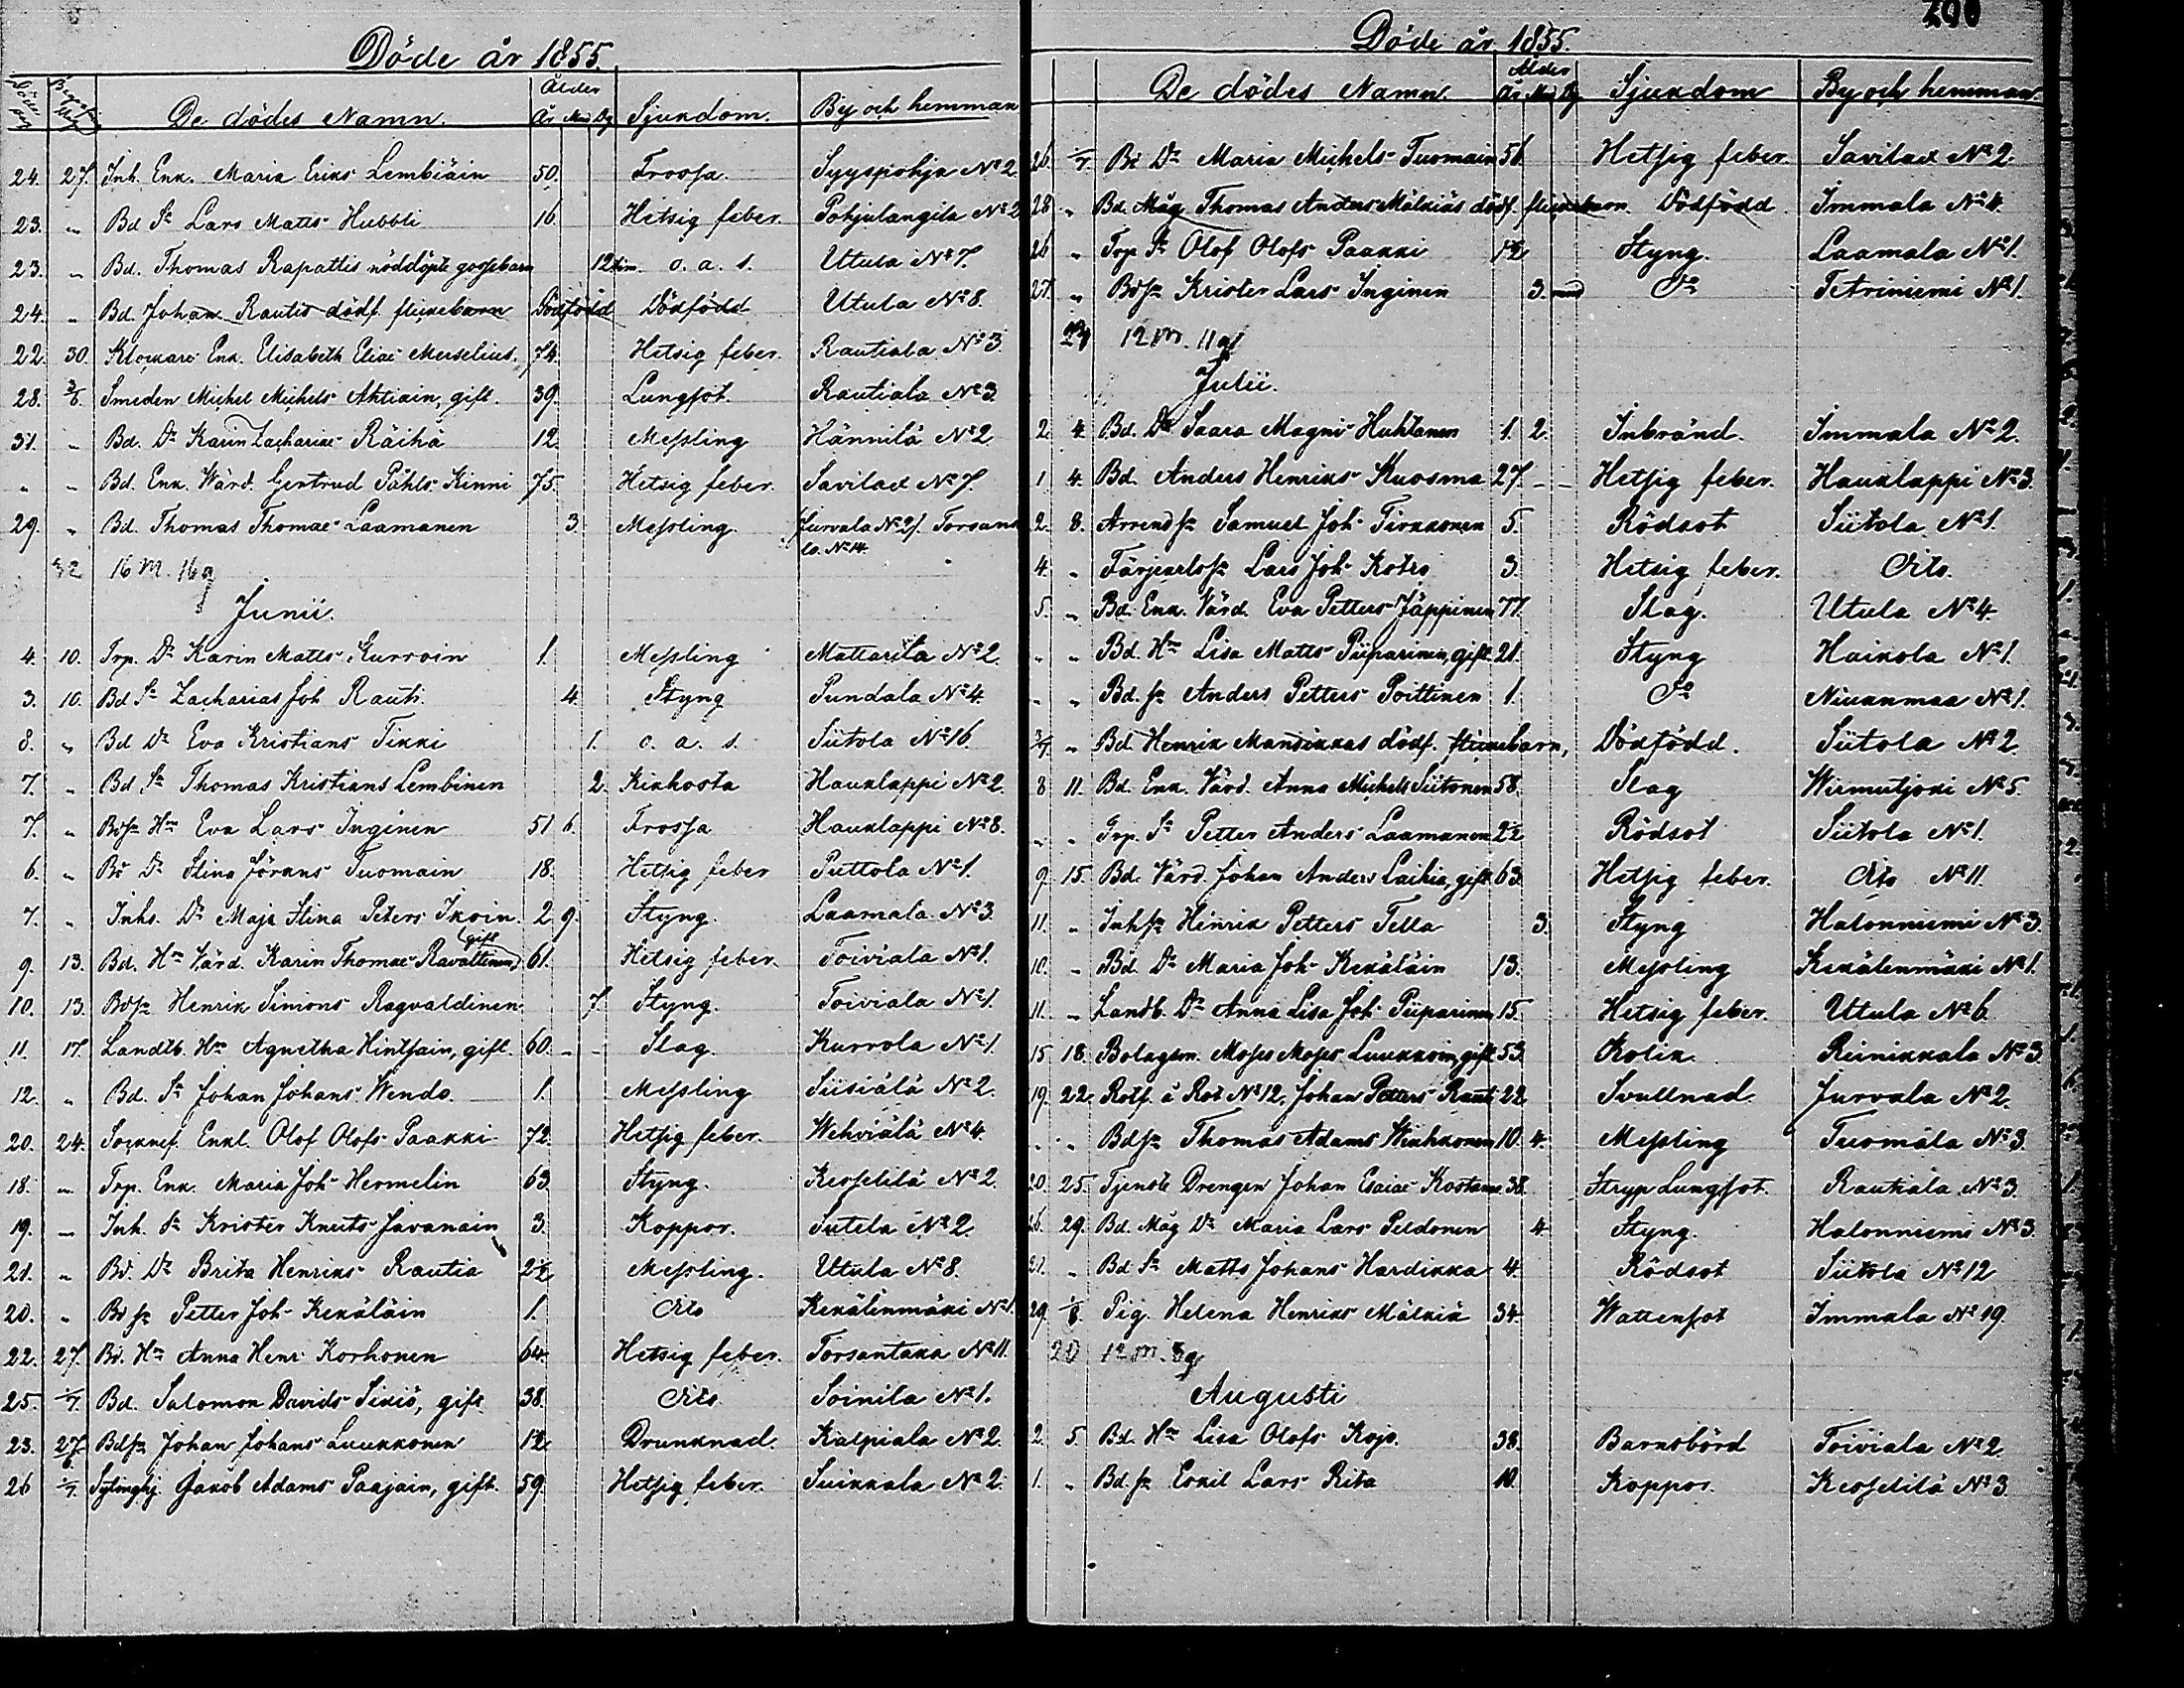 Döde år 1855.
De dödes Namn. Ålder År Mån Dg Sjukdom. By och hemman
24. 27. Inh. Enk. Maria Eriks Lembiäin 50. Frossa. Syyspohja No 2
23. " Bd Sn Lars Matts Hubbli 16. Hetsig feber. Pohjalangila No 2
23. " Bd. Thomas Rapattis nöddöpte gossebarn 12 tim. o. a. s. Utula No 7.
24. " Bd. Johan Rautis dödf. flickebarn Dödfödd Dödfödd Utula No 8.
22. 30. Klockars Enk. Elisabeth Eliae Merselius. 74. Hetsig feber. Rautiala No 3.
28. 3/6. Smeden Michel Michels Ahtiain, gift. 39. Lungsot. Rautiala No 3
31. " Bd. Dr Karin Zachariae Räihä 12. Messling Hännilä No 2
" " Bd. Enk. Wärd. Gertrud Påhls Kinni 75. Hetsig feber. Savilax No 7.
29. " Bd. Thomas Thomae Laamanen 3. Messling. Jurvala No 2/. Torsans
lo. No 14.
32 16 m. 16 q
Junii.
4. 10. Trp. Dr Karin Matts Hurroin 1. Messling Mattarila No 2.
3. 10. Bd Sn Zacharias Joh Rauti. 4. Styng Pundala No 4.
8. " Bd Dr Eva Kristians Tikki 1. o. a. s. Siitola No 16.
7. " Bd Sn Thomas Kristians Lembinen 2. Kikhosta Hauklappi No 2.
7. " Bdsn Hru Eva Lars Inginen 51 6. Frossa Hauklappi No 8.
6. " Bd Dr Stina Jörans Tuomain 18. Hetsig feber Puttola No 1.
7. " Inhs. Dr Maja Stina Peters Ikoin. 2 9. Styng. Laamala No 3.
9. 13. Bd. Hru Värd. Karin Thomae Ravattinen gift 61. Hetsig feber. Toiviala No 1.
10. 13. Bdsn Henrik Simons Ragvaldinen 7. Styng. Toiviala No 1.
11. 17. Landtb. Hru Agnetha Hintsain, gift. 60. - - Slag. Kurrola No 1.
12. " Bd. Sn Johan Johans Wendo. 1. Messling Siisiälä No 2.
20. 24. Socknef. Enkl. Olof Olofs Paakki 72. Hetsig feber. Wehviälä No 4.
18. " Trp. Enk. Maria Joh Hermelin 63 Styng. Kesselilä No 2.
19. " Inh. Sn Krister Knuts Javanain 3. Koppor. Sutela No 2.
21. " Bd. Dr Brita Henriks Rautia 2 1/2 Messling. Utula No 8.
20. " Bdsn Petter Joh Kekäläin 1. Dito Kekälenmäki No 1.
22. 27. Bd. Hru Anna Henr Korhonen 64. Hetsig feber. Torsantaka No 11.
25. 1/7. Bd. Salomon Davids Sikiö, gift. 38. Dito Soinila No 1.
23. 27/6. Bdsn Johan Johans Luukkonen 1 1/2 Drunknad. Kalpiala No 2.
26 1/7. Jakob Adams Paajain, gift. 59. Hetsig feber. Suikkala No 2.
Döde år 1855.
De dödes Namn. Ålder År Mån Dg Sjukdom By och hemman.
26. 1/7. Bd Dr Maria Michels Tuomain 56. Hetsig feber. Savilax No 2.
28 " Bd. Måg Thomas Anders Mälkiäs dödf. flickebarn. Dödfödd. Immala No 4.
26 " Trp Sn Olof Olofs Paakki 1 1/2 Styng. Laamala No 1.
27. " Bdsn Krister Lars Inginen 3. Do Tetriniemi No 1.
12 m. 11 q
Julii.
2. 4. Bd. Dr Saara Magni Huhtanen 1. 2. Inbränd. Immala No 2.
1. 4. Bd. Anders Henriks Kuosma 27. - - Hetsig feber. Hauklappi No 3.
2. 8. Arrendsn Samuel Joh Tirkkonen 5. Rödsot Siitola No 1.
4. " Färjkarlssn Lars Joh Kotro 3. Hetsig feber. Dito.
5. " Bd. Enk. Värd. Eva Petters Jäppinen 77. Slag. Utula No 4.
" " Bd. Hru Lisa Matts Piiparinen, gift 21. Styng Haikola No 1.
" " Bd. sn Anders Petters Poittinen 1. Do Niukanmaa No 1.
3/7. " Bd. Henrik Mansikkas dödf. flickebarn, Dödfödd. Siitola No 2.
8 11. Bd. Enk. Värd. Anna Michels Siitonen 58. Slag Wirmutjoki No 5.
" " Trp. Sn Petter Anders Laamanen 2 1/2 Rödsot Siitola No 1.
9. 15. Bd. Värd. Johan Anders Laihia, gift 63. Hetsig feber. Dito No 11.
11. " Inhsn Henrik Petters Tella 3. Styng Halonniemi No 3.
10. " Bd. Dr Maria Joh Kekäläin 13. Messling Kekälenmäki No 1.
11. " Landb. Dr Anna Lisa Joh Piiparinen 15. Hetsig feber. Utula No 6
15 18. Bolagsm. Moses Moses Luukkoin, gift 53. Kolik Reinikkala No 3.
19. 22. Rotf. å Rot No 12, Johan Petters Rauti 22. Svullnad. Jurvala No 2.
" " Bdsn Thomas Adams Wiukkonen 10. 4. Messling Tuomala No 3.
20. 25. Tjenste Drengen Johan Esaiae Kostama 38. Stryp Lungsot. Rautiala No 3.
26. 29. Bd. Måg Dr Maria Lars Peldonen 4. Styng. Halonniemi No 3.
21. " Bd Sn Matts Johans Hardikka 4. Rödsot Siitola No 12
29. 1/8. Pig. Helena Henriks Mälkiä 34. Wattensot Immala No 19.
20 12 m. 8 q
Augusti
2. 5. Bd. Hru Lisa Olofs Kojo. 38. Barnsbörd Toiviala No 2.
1. " Bd. sn Eskil Lars Rita 10. Koppor. Kesselilä No 3.